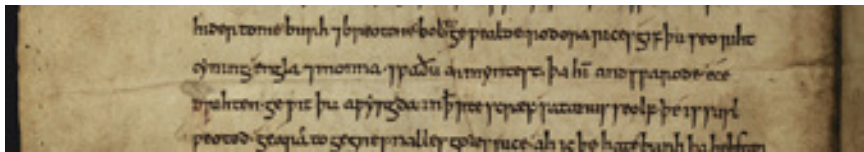 hider to me burh ⁊ breotone bold to ge wealde rodora rices gif þu seo riht
cyning engla ⁊ monna · swa ðu ær myntest · þa hī andswarode ece
drihten · ge wit þu awyrgda in þ wite scræf satanus seolf þe is susl
weotod · gearu to gegnes nalles godes rice · ah ic þe hate þurh þa hehstan